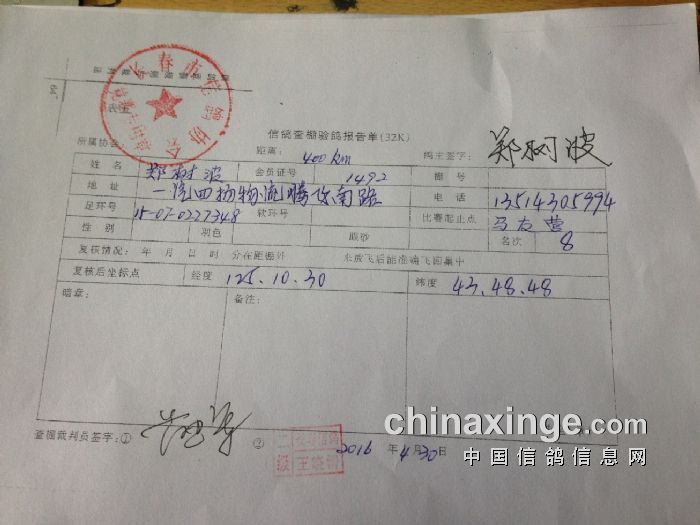 长春市信鸽协会
信鸽查棚验鸽报告单(32K)
所属协会: 距离: 400km 鸽主签字: 郑树波
姓名 郑树波 会员证号 1492 棚号
地址 一汽四场物流腾
电话 13514305994
足环号 15-07-0227348 软环号 比赛起止点 马友营
性别 羽色 眼砂 名次 8
复核情况: 年 月 日 时 分在距棚外 米放飞后能准确飞回集中
复核后坐标点 经度 125.10.30 纬度 43.48.48
暗章: 备注:
查棚裁判员签字:① ② 2016 年 4月30日
二级
chinaxinge.com
中国信鸽信息网